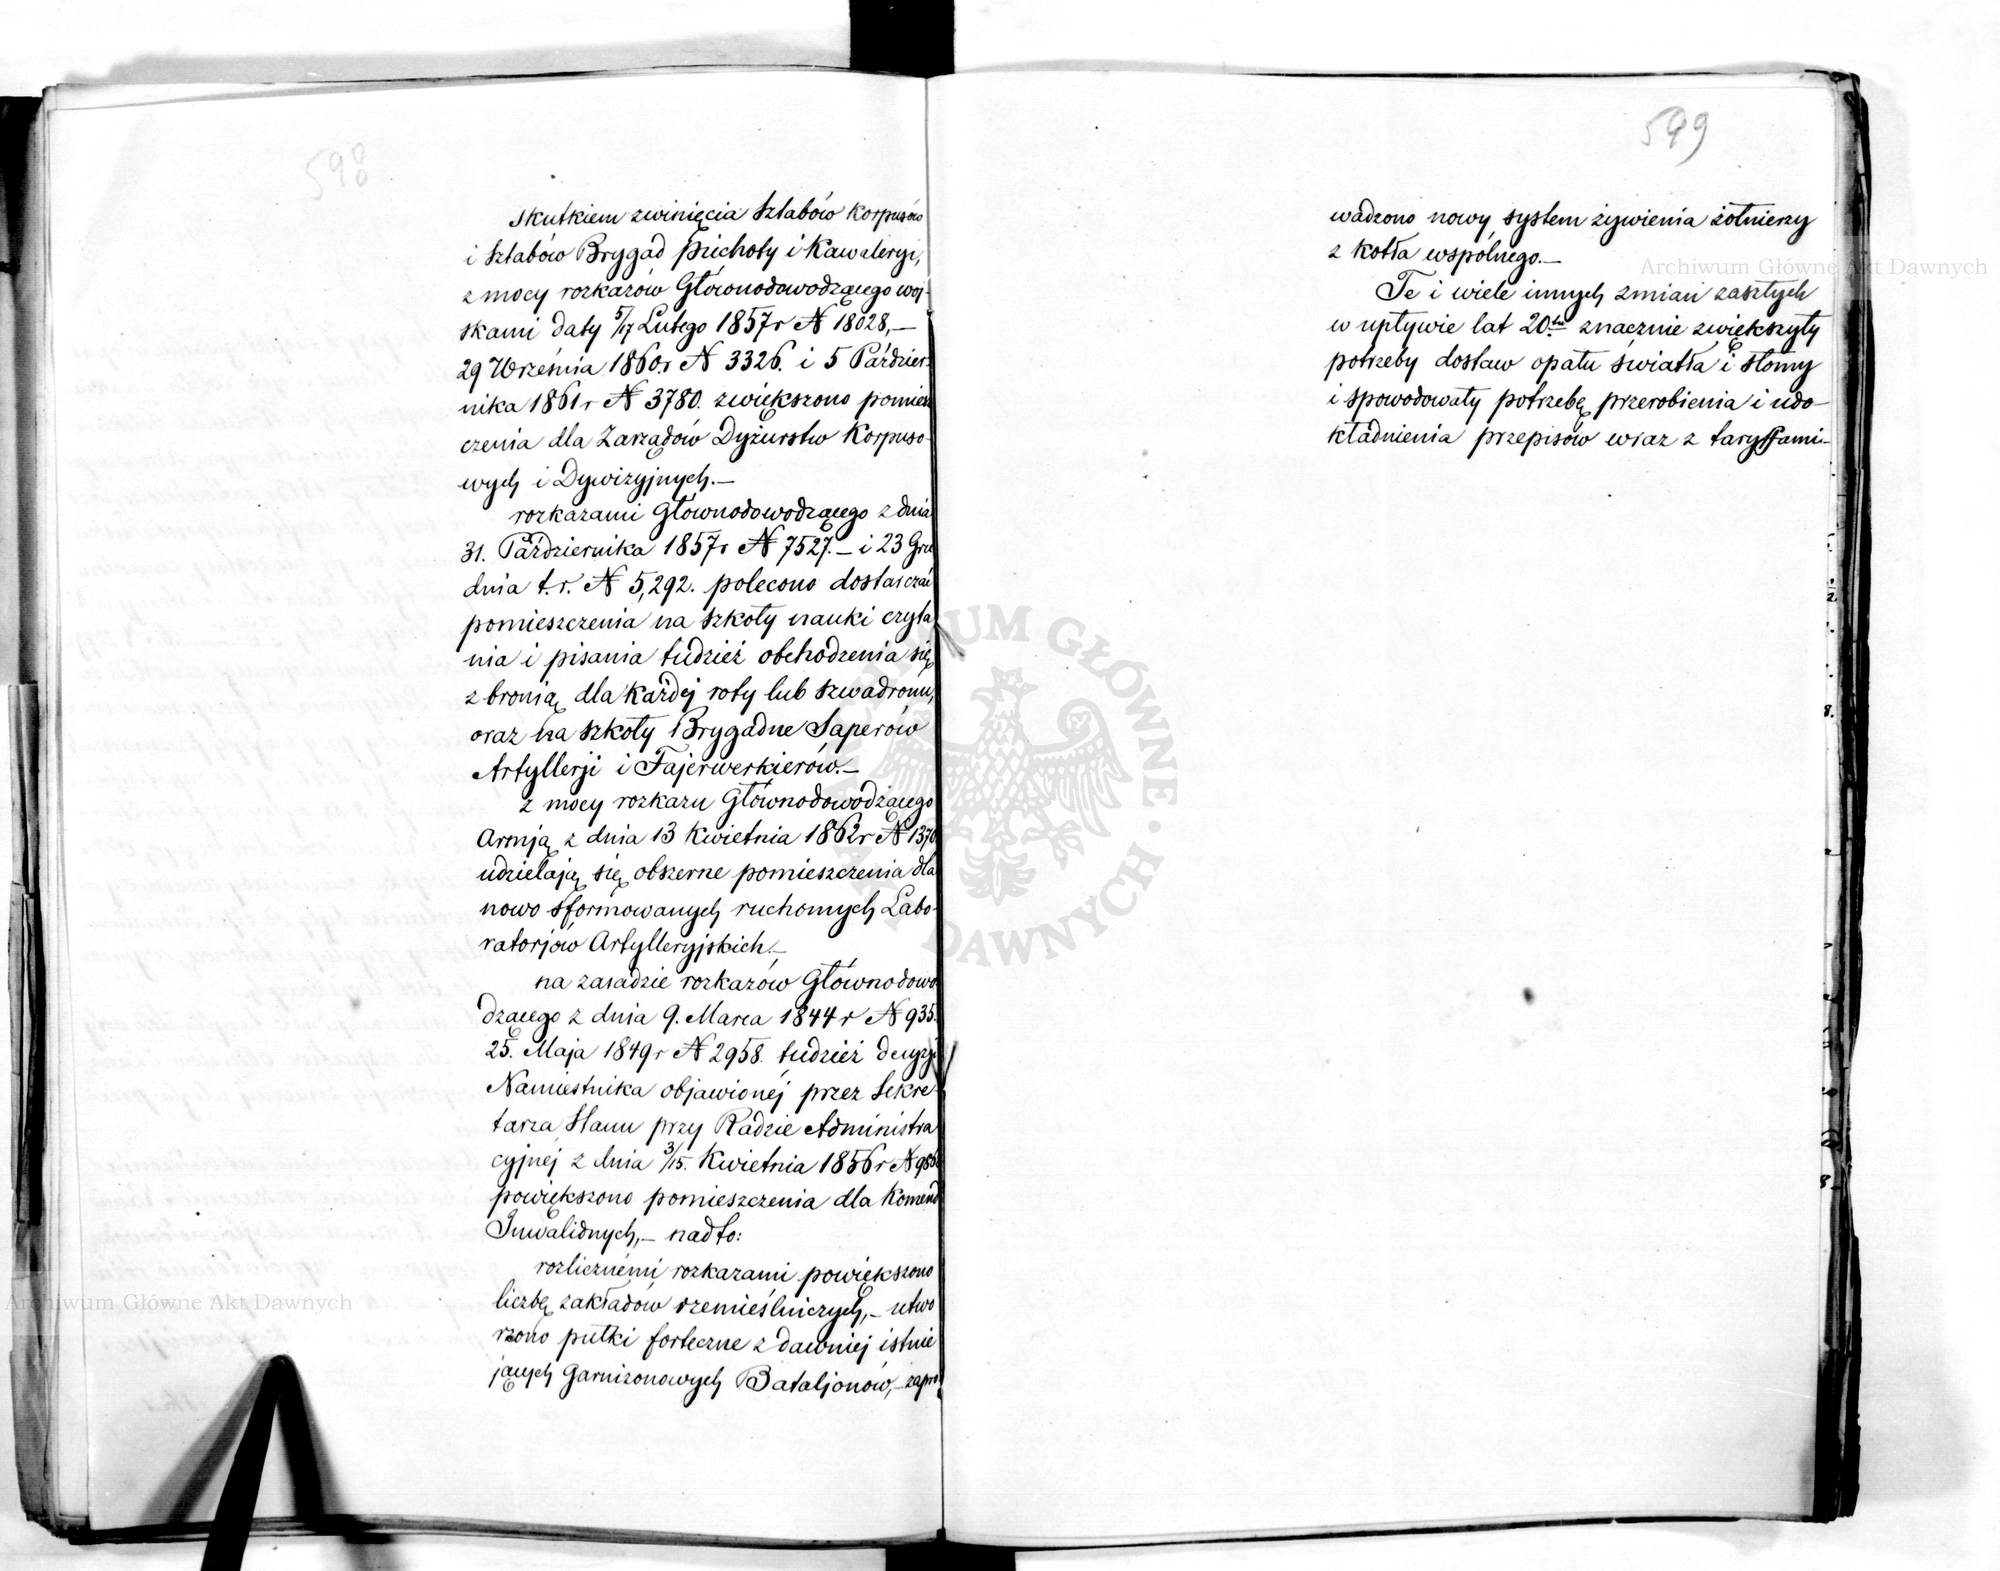 598
skutkiem zwinięcia Sztabów Korpusów
i Sztabów Brygad Piechoty i Kawaleryi,
z mocy rozkazów Głównodowodzącego woj-
skami daty 5/17 Lutego 1857r N 18028,—
29 Września 1860.r N 3326. i 5 Paździer-
nika 1861r N 3780. zwiększono pomiesz
czenia dla Zarządów Dyżurstw Korpuso-
wych i Dywizyjnych.—
rozkazami Głównodowodzącego z dnia
31. Października 1857r N 7527.— i 23 Gru
dnia t.r. N 5,292. polecono dostarczać
pomieszczenia na szkoły nauki czyta
nia i pisania tudzież obchodzenia się
z bronią dla każdej roty lub szwadronu,
oraz na szkoły Brygadne Saperów
Artyllerji i Fajerwerkierów.—
z mocy rozkazu Głównodowodzącego
Armją z dnia 13 Kwietnia 1862r N 1370
udzielają się obszerne pomieszczenia dla
nowo sformowanych ruchomych Labo-
ratorjów Artylleryjskich.—
na zasadzie rozkazów Głównodowo
dzącego z dnia 9. Marca 1844r N 935.
25. Maja 1849r N 2958. tudzież decyzji
Namiestnika objawionéj przez Sekre-
tarza Stanu przy Radzie Administra
cyjnéj z dnia 3/15. Kwietnia 1856r N
powiększono pomieszczenia dla Komend
Inwalidnych,— nadto:
rozlicznémi rozkazami powiększono
liczbę zakładów rzemieślniczych,— utwo
rzono pułki forteczne z dawniej istnie
jących Garnizonowych Bataljonów,— zapro
599
wadzono nowy system żywienia żołnierzy
z kotła wspólnego.—
Te i wiele innych zmian zaszłych
w upływie lat 20.tu znacznie zwiększyły
potrzeby dostaw opału światła i słomy
i spowodowały potrzebę przerobienia i udo-
kładnienia przepisów wraz z taryffami—
Archiwum Główne Akt Dawnych
Archiwum Główne Akt Dawnych
ARCHIWUM GŁÓWNE AKT DAWNYCH